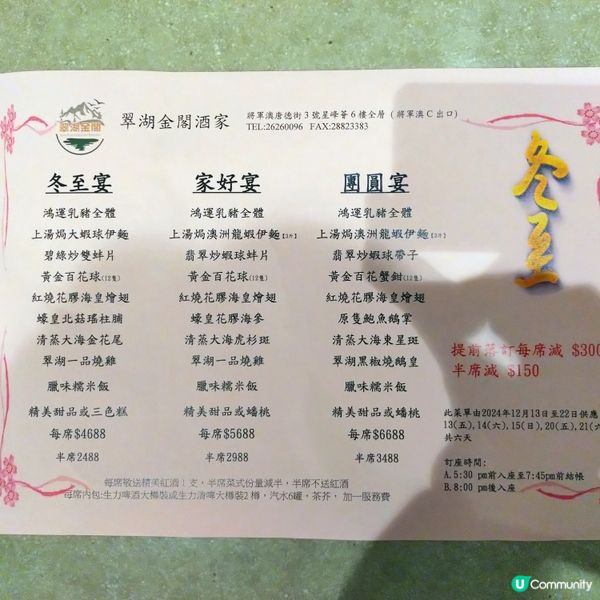 翠湖金閣
翠湖金閣酒家
將軍澳唐德街3號星峰薈6樓全層(將軍澳C出口)
TEL:26260096 FAX:28823383
冬至宴
鴻運乳豬全體
上湯焗大蝦球伊麵
碧綠炒雙蚌片
黃金百花球(12隻)
紅燒花膠海皇燴翅
蠔皇北菇瑤柱脯
清蒸大海金花尾
翠湖一品燒雞
臘味糯米飯
精美甜品或三色糕
每席$4688
半席2488
家好宴
鴻運乳豬全體
上湯焗澳洲龍蝦伊麵【3斤】
翡翠炒蝦球蚌片
黃金百花球(12隻)
紅燒花膠海皇燴翅
蠔皇花膠海參
清蒸大海虎杉斑
翠湖一品燒雞
臘味糯米飯
精美甜品或蟠桃
每席$5688
半席2988
團圓宴
鴻運乳豬全體
上湯焗澳洲龍蝦伊麵【3斤】
翡翠炒蝦球帶子
黃金百花蟹鉗(12隻)
紅燒花膠海皇燴翅
原隻鮑魚鵝掌
清蒸大海東星斑
翠湖黑椒燒鵝皇
臘味糯米飯
精美甜品或蟠桃
每席$6688
半席3488
每席敬送精美紅酒1支,半席菜式份量減半,半席不送紅酒
每席內包:生力啤酒大樽裝或生力清啤大樽裝2樽,汽水6罐,茶芥,加一服務費
冬至
提前落訂每席減 $300
半席減 $150
此菜單由2024年12月13日至22日供應
13(五),14(六),15(日),20(五),21(六
共六天
訂座時間:
A.5:30 pm前入座至7:45pm前結帳
B.8:00 pm後入座
U Community